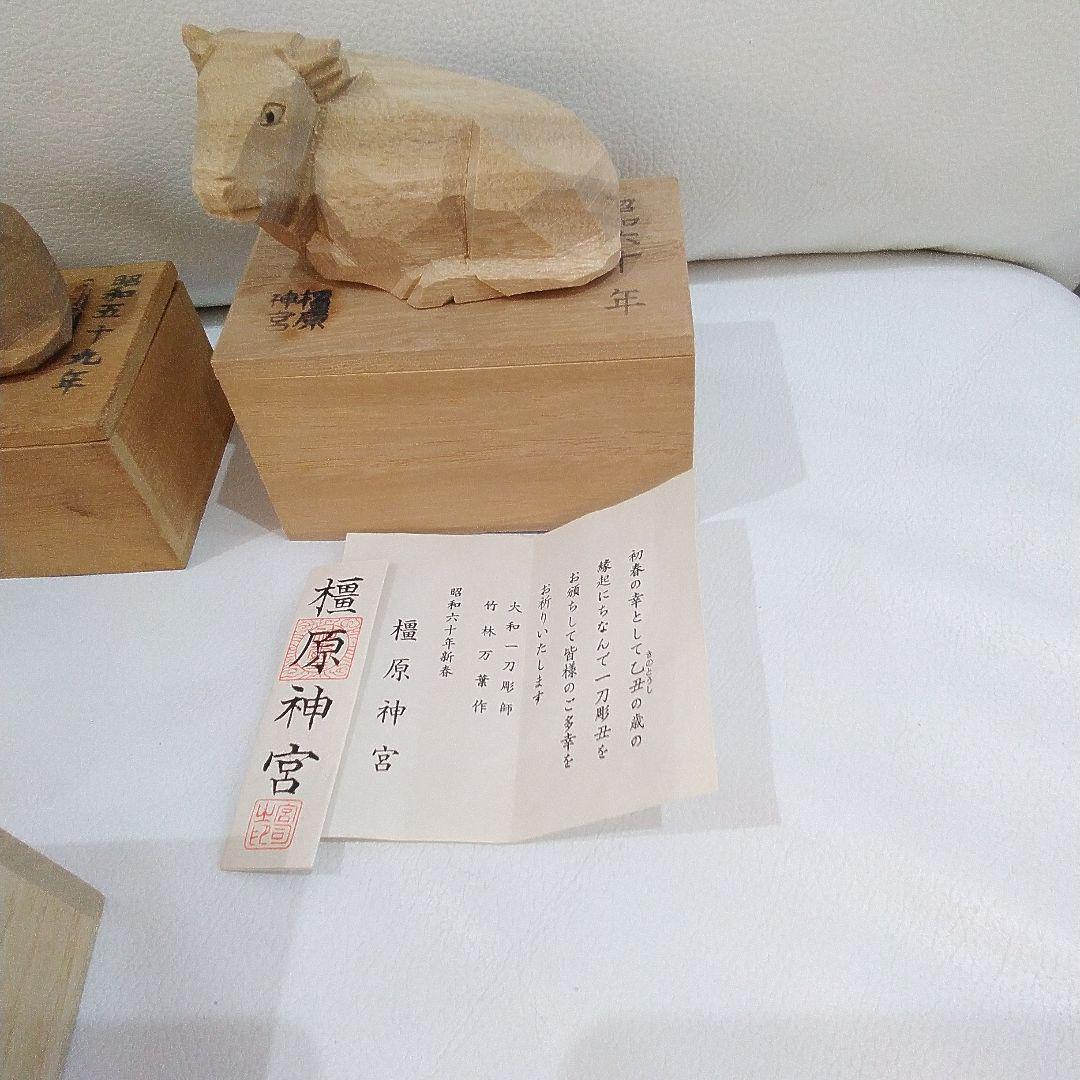 昭和六十年
橿原
神宮
昭和五十九年
初春の幸として乙丑の歳の
きのとうし
縁起にちなんで一刀彫丑を
お頒ちして皆様のご多幸を
お祈りいたします
大和一刀彫師
竹林万葉作
昭和六十年新春
橿原神宮
橿原神宮
宮司
之印